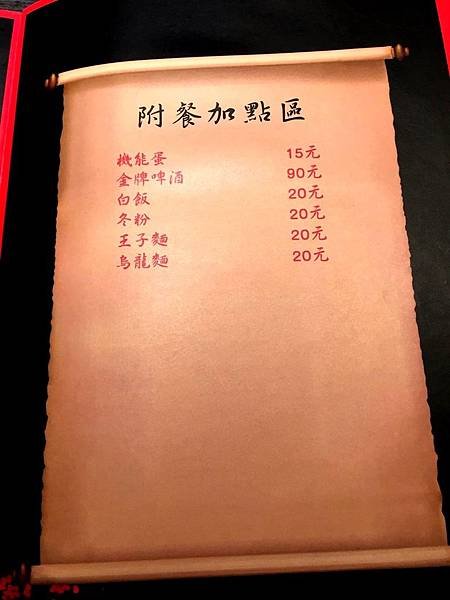 附餐加點區
機能蛋 15元
金牌啤酒 90元
白飯 20元
冬粉 20元
王子麵 20元
烏龍麵 20元